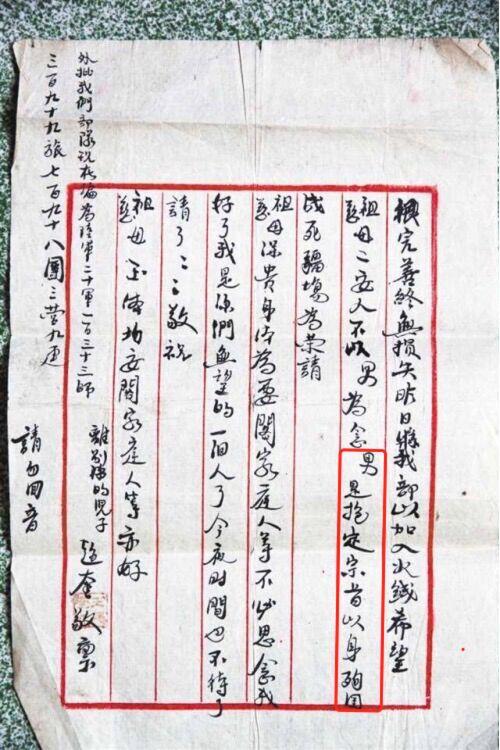 完善終無損失昨日將我部以加入火线希望
祖慈母二安人不以男為念男是抱定宗旨以身殉国
战死疆場為荣請
祖慈母保貴身体為要闔家庭人等不必思念我
好了我是你們無望的一個人了今夜时間也不待了
請了〻〻敬祝
祖慈母玉体均安闔家庭人等亦好
離别膝的兒子 赵奎敬禀
請勿回音
外批我們部隊現在编為陸軍二十軍一百三十三師
三百九十九旅七百九十八團三营九連